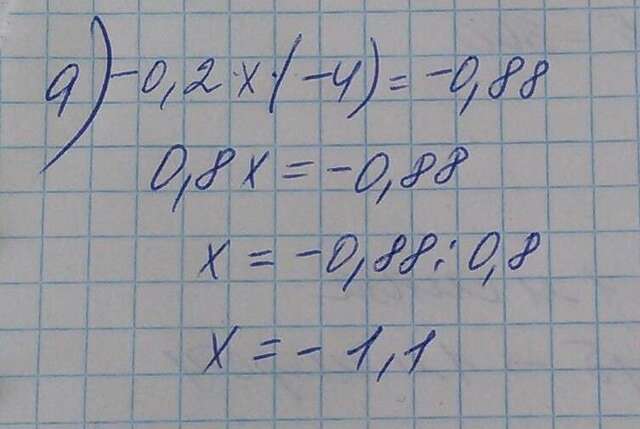 а) -0,2·x·(-4) = -0,88
0,8x = -0,88
x = -0,88 : 0,8
x = -1,1